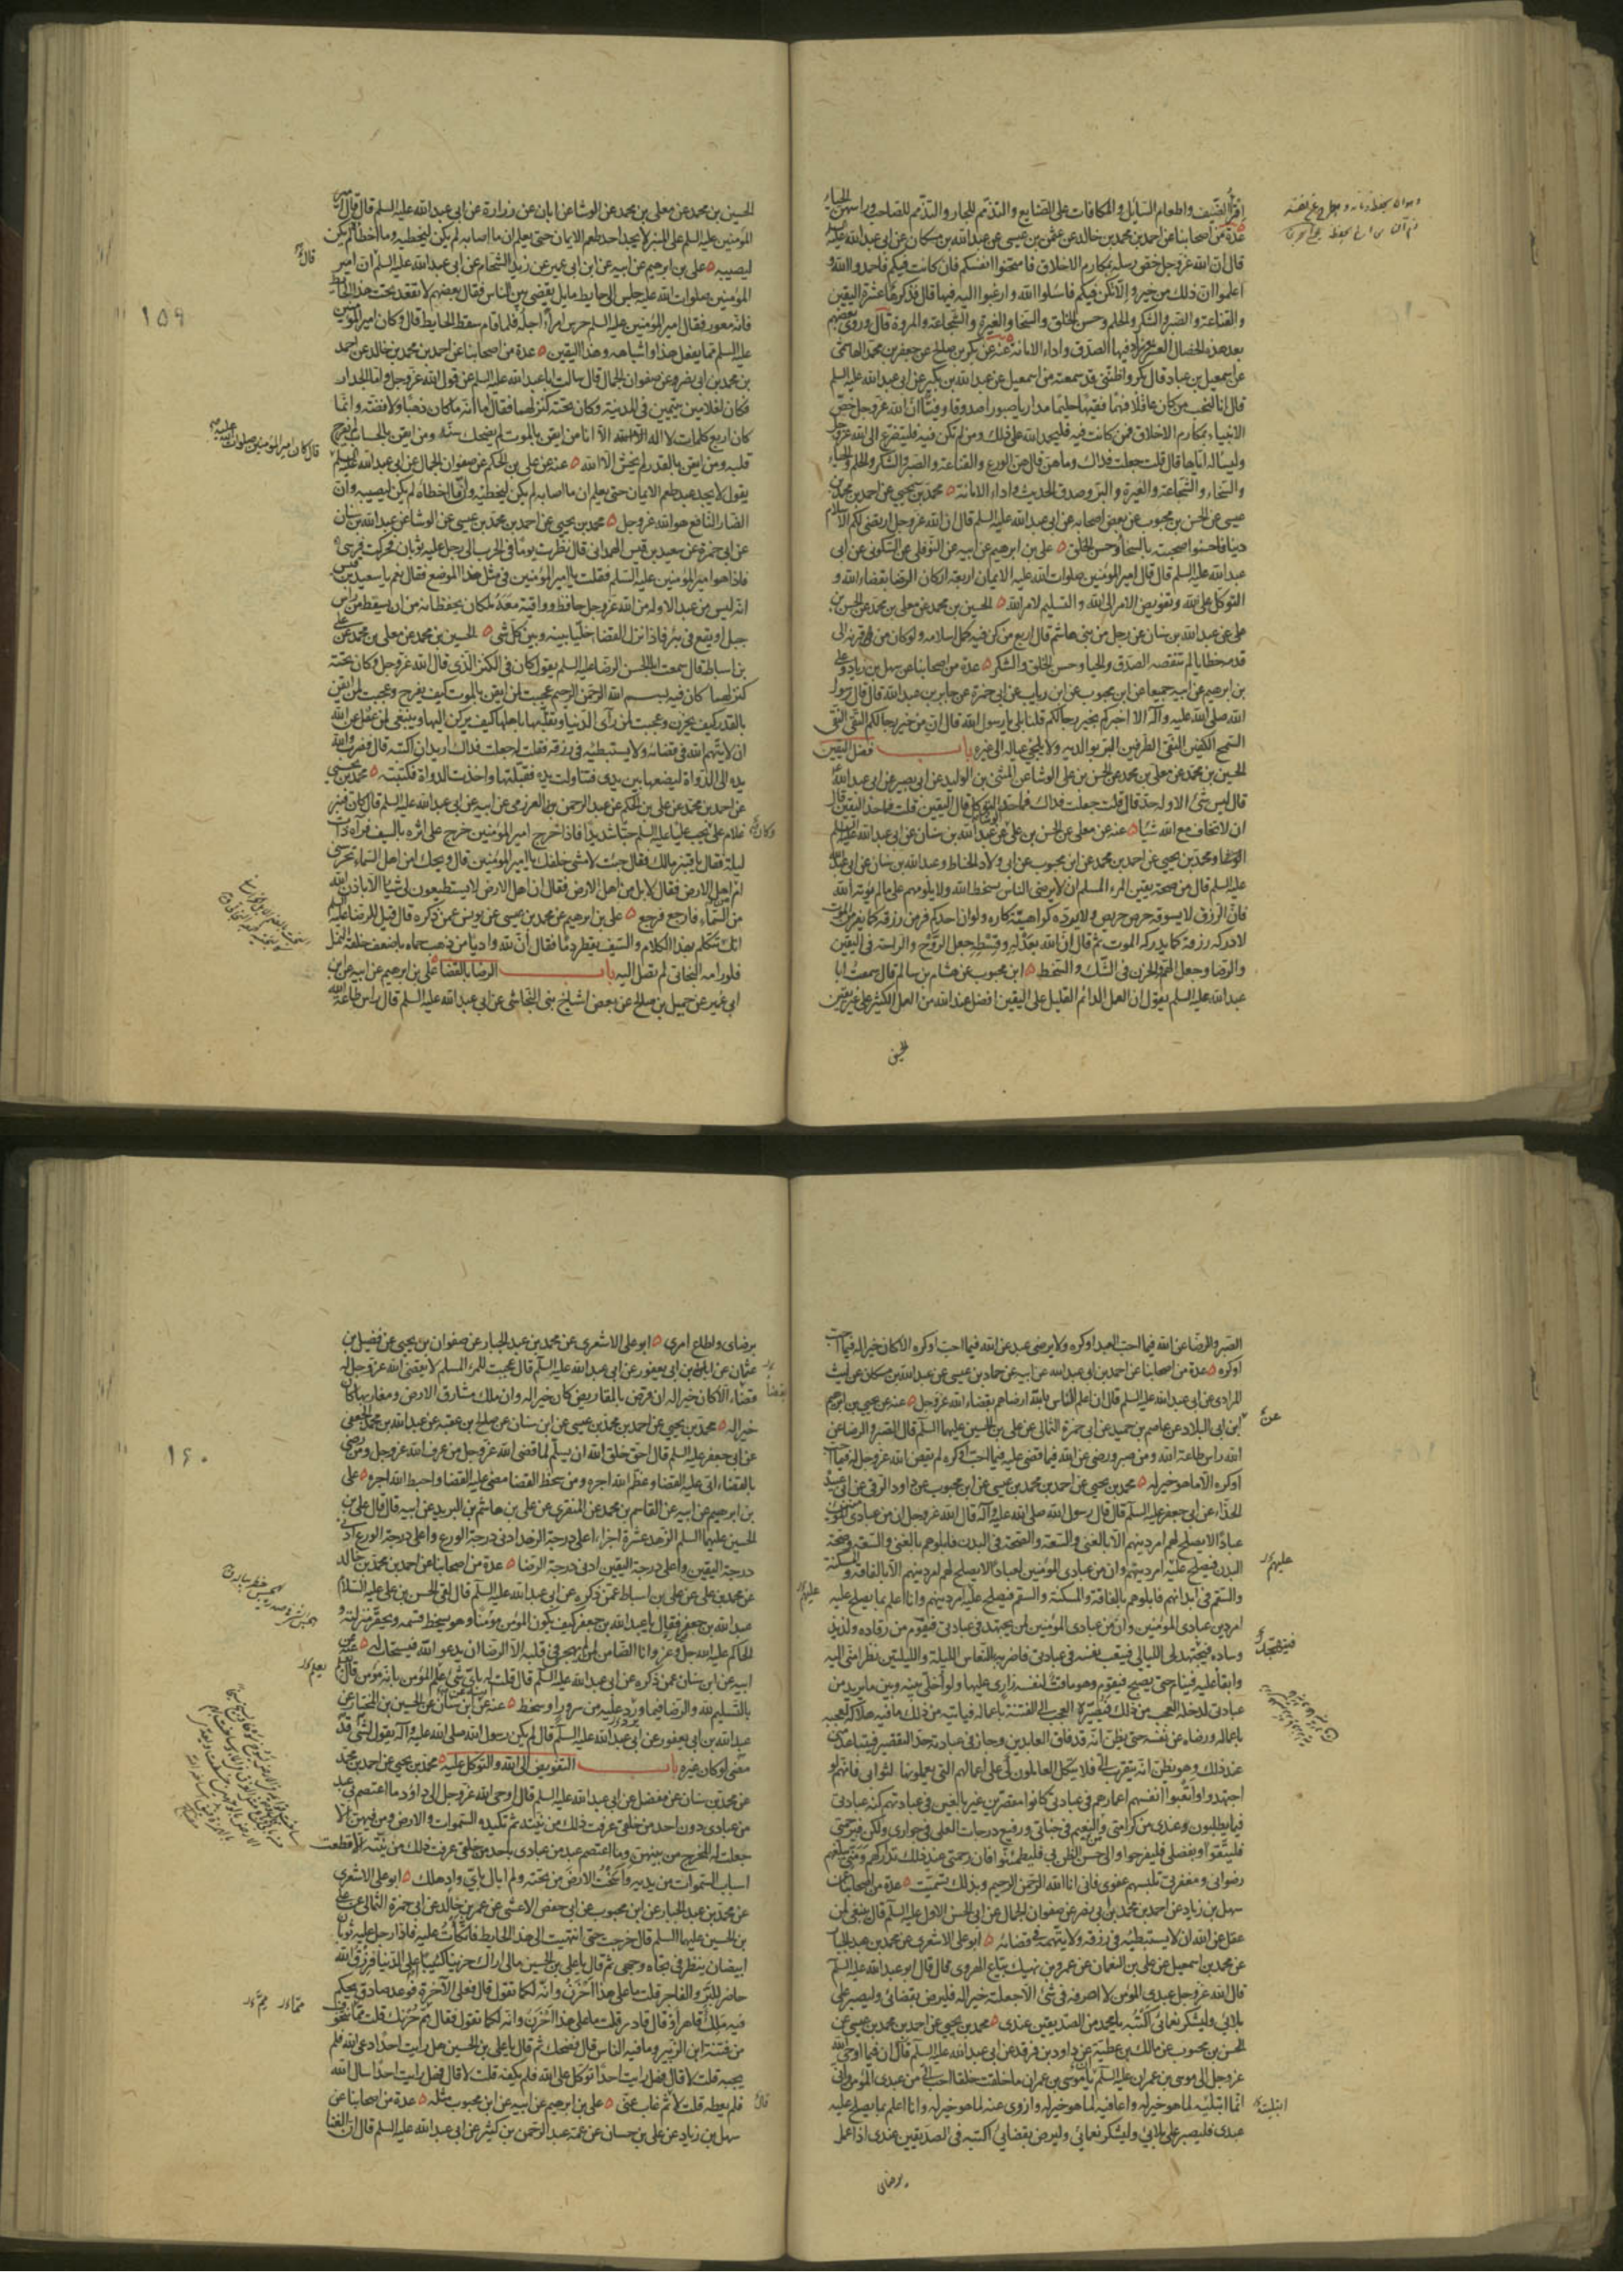 اقراء الضيف واطعام السايل والمكافات على الصنايع والتذمم للجار والتذمم للصاحب وراسهن الحياء
عدة من اصحابنا عن احمد بن محمد بن خالد عن عثمن بن عيسى عن عبدالله بن مسكان عن ابى عبدالله عليه السلم
قال ان الله عزوجل خص رسله بمكارم الاخلاق فامتحنوا انفسكم فان كانت فيكم فاحمدوا الله و
اعلموا ان ذلك من خير والا تكن فيكم فاسئلوا الله وارغبوا اليه فيها قال فذكرها عشرة اليقين
والقناعة والصبر والشكر والحلم وحسن الخلق والسخا والغيرة والشجاعة والمروة قال وروى بعضهم
بعد هذه الخصال العشرة وزاد فيها الصدق واداء الامانة عنه عن بكر بن صالح عن جعفر بن محمد الهاشمى
عن اسمعيل بن عباد قال بكر واظننى قد سمعته من اسمعيل عن عبدالله بن بكير عن ابى عبدالله عليه السلم
قال انا لنحب من كان عاقلا فهما فقيها حليما مداريا صبورا صدوقا وفيا ان الله عزوجل خص
الانبياء بمكارم الاخلاق فمن كانت فيه فليحمد الله على ذلك ومن لم تكن فيه فليتضرع الى الله عزوجل
وليسئله اياها قال قلت جعلت فداك وما هن قال هن الورع والقناعة والصبر والشكر والحلم والحياء
والسخاء والشجاعة والغيرة والبر وصدق الحديث واداء الامانة محمد بن يحيى عن احمد بن محمد بن
عيسى عن الحسن بن محبوب عن بعض اصحابه عن ابى عبدالله عليه السلم قال ان الله عزوجل ارتضى لكم الاسلام
دينا فاحسنوا صحبته بالسخا وحسن الخلق على بن ابرهيم عن ابيه عن النوفلى عن السكونى عن ابى
عبدالله عليه السلم قال قال امير المؤمنين صلوات الله عليه الايمان اربعة اركان الرضا بقضاء الله و
التوكل على الله وتفويض الامر الى الله والتسليم لامر الله الحسين بن محمد عن معلى بن محمد عن الحسن بن
على عن عبدالله بن سنان عن رجل من بنى هاشم قال اربع من كن فيه كمل اسلامه ولو كان من قرنه الى
قدمه خطايا لم تنقصه الصدق والحيا وحسن الخلق والشكر عدة من اصحابنا عن سهل بن زياد وعلى
بن ابرهيم عن ابيه جميعا عن ابن محبوب عن ابن رياب عن ابى حمزة عن جابر بن عبدالله قال قال رسول
الله صلى الله عليه وآله الا اخبركم بخير رجالكم قلنا بلى يا رسول الله قال ان من خير رجالكم التقى النقى
السمح الكفين النقى الطرفين البر بوالديه ولا يلجئ عياله الى غيره باب فضل اليقين
الحسين بن محمد عن معلى بن محمد عن الحسن بن على الوشا عن المثنى بن الوليد عن ابى بصير عن ابى عبدالله
قال ليس شئ الا وله حد قال قلت جعلت فداك فما حد التوكل قال اليقين قلت فما حد اليقين قال
ان لا تخاف مع الله شيئا عنه عن معلى عن الحسن بن على عن عبدالله بن سنان عن ابى عبدالله عليه السلم
ومحمد بن يحيى عن احمد بن محمد عن ابن محبوب عن ابى ولاد الحناط وعبدالله بن سنان عن ابى عبدالله
عليه السلم قال من صحة يقين المرء المسلم ان لا يرضى الناس بسخط الله ولا يلومهم على ما لم يؤته الله
فان الرزق لا يسوقه حرص حريص ولا يرده كراهية كاره ولو ان احدكم فر من رزقه كما يفر من الموت
لادركه رزقه كما يدركه الموت ثم قال ان الله بعدله وقسطه جعل الروح والراحة فى اليقين
والرضا وجعل الهم والحزن فى الشك والسخط ابن محبوب عن هشام بن سالم قال سمعت ابا
عبدالله عليه السلم يقول ان العمل الدائم القليل على اليقين افضل عند الله من العمل الكثير على غير يقين
الحسين
الحسين بن محمد عن معلى بن محمد عن الوشا عن ابان عن زرارة عن ابى عبدالله عليه السلم قال قال امير
المؤمنين عليه السلم على المنبر لا يجد احد طعم الايمان حتى يعلم ان ما اصابه لم يكن ليخطيه وما اخطأه لم يكن
ليصيبه على بن ابرهيم عن ابيه عن ابن ابى عمير عن زيد الشحام عن ابى عبدالله عليه السلم ان امير
قال
المؤمنين صلوات الله عليه جلس الى حايط مايل يقضى بين الناس فقال بعضهم لا تقعد تحت هذا الحايط
فانه معور فقال امير المؤمنين عليه السلم حرس امرأ اجله فلما قام سقط الحايط قال وكان امير المؤمنين
١٥٩
عليه السلم مما يفعل هذا واشباهه وهذا اليقين عدة من اصحابنا عن احمد بن محمد بن خالد عن احمد
بن محمد بن ابى نصر عن صفوان الجمال قال سالت ابا عبدالله عليه السلم عن قول الله عزوجل واما الجدار
فكان لغلامين يتيمين فى المدينة وكان تحته كنز لهما فقال اما انه ما كان ذهبا ولا فضة وانما
كان اربع كلمات لا اله الا الله الا انا من ايقن بالموت لم يضحك سنه ومن ايقن بالحساب لم يفرح
قال كان امير المؤمنين صلوات الله عليه
قلبه ومن ايقن بالقدر لم يخش الا الله عنه عن على بن الحكم عن صفوان الجمال عن ابى عبدالله عليه السلم
يقول لا يجد عبد طعم الايمان حتى يعلم ان ما اصابه لم يكن ليخطئه وان ما اخطاه لم يكن ليصيبه وان
الضار النافع هو الله عزوجل محمد بن يحيى عن احمد بن محمد بن عيسى عن الوشا عن عبدالله بن سنان
عن ابى حمزة عن سعيد بن قيس الهمدانى قال نظرت يوما فى الحرب الى رجل عليه ثوبان فحركت فرسى
فاذا هو امير المؤمنين عليه السلم فقلت يا امير المؤمنين فى مثل هذا الموضع فقال نعم يا سعيد بن قيس
انه ليس من عبد الا وله من الله عزوجل حافظ وواقية معه ملكان يحفظانه من ان يسقط من راس
جبل او يقع فى بئر فاذا نزل القضا خليا بينه وبين كل شى الحسين بن محمد عن معلى بن محمد عن على
بن اسباط قال سمعت ابا الحسن الرضا عليه السلم يقول كان فى الكنز الذى قال الله عزوجل وكان تحته
كنز لهما كان فيه بسم الله الرحمن الرحيم عجبت لمن ايقن بالموت كيف يفرح وعجبت لمن ايقن
بالقدر كيف يحزن وعجبت لمن رآى الدنيا وتقلبها باهلها كيف يركن اليها وينبغى لمن عقل عن الله
ان لا يتهم الله فى قضائه ولا يستبطئه فى رزقه فقلت جعلت فداك اريد ان اكتبه قال فضرب والله
يده الى الدواة ليضعها بين يدى فتناولت يده فقبلتها واخذت الدواة فكتبته محمد بن يحيى
عن احمد بن محمد عن على بن الحكم عن عبد الرحمن بن العرزمى عن ابيه عن ابى عبدالله عليه السلم قال كان قنبر
غلام على يحب عليا عليه السلم حبا شديدا فاذا خرج امير المؤمنين خرج على اثره بالسيف فرآه ذات
ليلة فقال يا قنبر مالك فقال جئت لامشى خلفك يا امير المؤمنين قال ويحك امن اهل السماء تحرسنى
ام من اهل الارض فقال لا بل من اهل الارض فقال ان اهل الارض لا يستطيعون لى شيئا الا باذن الله
من السماء فارجع فرجع على بن ابرهيم عن محمد بن عيسى عن يونس عمن ذكره قال قيل للرضا عليه السلم
انك تتكلم بهذا الكلام والسيف يقطر دما فقال ان لله واديا من ذهب حماه باضعف خلقه النمل
فلو رامه البخاتى لم تصل اليه باب الرضا بالقضا على بن ابرهيم عن ابيه عن ابن
ابى عمير عن جميل بن صالح عن بعض اشياخ بنى النجاشى عن ابى عبدالله عليه السلم قال راس طاعة الله
الصبر والرضا عن الله فيما احب العبد او كره ولا يرضى عبد عن الله فيما احب او كره الا كان خيرا له فيما احب
او كره عدة من اصحابنا عن احمد بن ابى عبدالله عن ابيه عن حماد بن عيسى عن عبدالله بن مسكان عن ليث
المرادى عن ابى عبدالله عليه السلم قال ان اعلم الناس بالله ارضاهم بقضاء الله عزوجل عنه عن يحيى بن ابرهيم
ابن ابى البلاد عن عاصم بن حميد عن ابى حمزة الثمالى عن على بن الحسين عليهما السلم قال الصبر والرضا عن
عن
الله راس طاعة الله ومن صبر ورضى عن الله فيما قضى عليه فيما احب او كره لم يقض الله عزوجل له فيما احب
او كره الا ما هو خير له محمد بن يحيى عن احمد بن محمد بن عيسى عن ابن محبوب عن داود الرقى عن ابى عبيدة
الحذاء عن ابى جعفر عليه السلم قال قال رسول الله صلى الله عليه وآله قال الله عزوجل ان من عبادى المؤمنين
عبادا لا يصلح لهم امر دينهم الا بالغنى والسعة والصحة فى البدن فابلوهم بالغنى والسعة وصحة
البدن فيصلح عليه امر دينهم وان من عبادى المؤمنين لعبادا لا يصلح لهم امر دينهم الا بالفاقة والمسكنة
عليهم
والسقم فى ابدانهم فابلوهم بالفاقة والمسكنة والسقم فيصلح عليه امر دينهم وانا اعلم بما يصلح عليه
عليهم
امر دين عبادى المؤمنين وان من عبادى المؤمنين لمن يجتهد فى عبادتى فيقوم من رقاده ولذيذ
وساده فيجتهد لى الليالى فيتعب نفسه فى عبادتى فاضربه بالنعاس الليلة والليلتين نظرا منى اليه
فيتهجد
وابقاء عليه فينام حتى يصبح فيقوم وهو ماقت لنفسه زارى عليها ولو اخلى بينه وبين ما يريد من
عبادتى لدخله العجب من ذلك فيصيره العجب الى الفتنة باعماله فياتيه من ذلك ما فيه هلاكه لعجبه
باعماله ورضاه عن نفسه حتى يظن انه قد فاق العابدين وجاز فى عبادته حد التقصير فيتباعد منى
عند ذلك وهو يظن انه يتقرب الى فلا يتكل العاملون لى على اعمالهم التى يعملونها لثوابى فانهم لو
اجتهدوا واتعبوا انفسهم اعمارهم فى عبادتى كانوا مقصرين غير بالغين فى عبادتهم كنه عبادتى
فيما يطلبون عندى من كرامتى والنعيم فى جناتى ورفيع درجات العلى فى جوارى ولكن فبرحمتى
فليثقوا وبفضلى فليفرحوا والى حسن الظن بى فليطمئنوا فان رحمتى عند ذلك تداركهم ومنى يبلغهم
رضوانى ومغفرتى تلبسهم عفوى فانى انا الله الرحمن الرحيم وبذلك تسميت عدة من اصحابنا عن
سهل بن زياد عن احمد بن محمد بن ابى نصر عن صفوان الجمال عن ابى الحسن الاول عليه السلم قال ينبغى لمن
عقل عن الله ان لا يستبطئه فى رزقه ولا يتهمه فى قضائه ابو على الاشعرى عن محمد بن عبد الجبار
عن محمد بن اسمعيل عن على بن النعمان عن عمرو بن نهيك بياع الهروى قال قال ابو عبدالله عليه السلم
قال الله عزوجل عبدى المؤمن لا اصرفه فى شئ الا جعلته خيرا له فليرض بقضائى وليصبر على
بلائى وليشكر نعمائى اكتبه يا محمد من الصديقين عندى محمد بن يحيى عن احمد بن محمد بن عيسى عن
الحسن بن محبوب عن مالك بن عطية عن داود بن فرقد عن ابى عبدالله عليه السلم قال ان فيما اوحى الله
عزوجل الى موسى بن عمران عليه السلم يا موسى بن عمران ما خلقت خلقا احب الى من عبدى المؤمن وانى
انما ابتليه لما هو خير له واعافيه لما هو خير له وازوى عنه لما هو خير له وانا اعلم بما يصلح عليه
ابتليته
عبدى فليصبر على بلائى وليشكر نعمائى وليرض بقضائى اكتبه فى الصديقين عندى اذا عمل
برضاى
برضاى واطاع امرى ابو على الاشعرى عن محمد بن عبد الجبار عن صفوان بن يحيى عن فضيل بن
عثمان عن ابن ابى يعفور عن ابى عبدالله عليه السلم قال عجبت للمرء المسلم لا يقضى الله عزوجل له
قضاء الا كان خيرا له ان قرض بالمقاريض كان خيرا له وان ملك مشارق الارض ومغاربها كان
خيرا له محمد بن يحيى عن احمد بن محمد بن عيسى عن ابن سنان عن صالح بن عقبة عن عبدالله بن محمد الجعفى
عن ابى جعفر عليه السلم قال احق خلق الله ان يسلم لما قضى الله عزوجل من عرف الله عزوجل ومن رضى
١٦٠
بالقضاء اتى عليه القضا وعظم الله اجره ومن سخط القضا مضى عليه القضا واحبط الله اجره على
بن ابرهيم عن ابيه عن القاسم بن محمد عن المنقرى عن على بن هاشم بن البريد عن ابيه قال قال على بن
الحسين عليهما السلم الزهد عشرة اجزاء اعلى درجة الزهد ادنى درجة الورع واعلى درجة الورع ادنى
درجة اليقين واعلى درجة اليقين ادنى درجة الرضا عدة من اصحابنا عن احمد بن محمد بن خالد
عن محمد بن على عن على بن اسباط عمن ذكره عن ابى عبدالله عليه السلم قال لقى الحسن بن على عليه السلام
عبدالله بن جعفر فقال يا عبدالله بن جعفر كيف يكون المؤمن مؤمنا وهو يسخط قسمه ويحقر منزلته و
الحاكم عليه الله جل وعز وانا الضامن لمن لم يهجس فى قلبه الا الرضا ان يدعو الله فيستجاب له عنه عن
ابيه عن ابن سنان عمن ذكره عن ابى عبدالله عليه السلم قال قلت له باى شئ علم المؤمن بانه مؤمن قال
يعلم
بالتسليم لله والرضا فيما ورد عليه من سرور او سخط عنه عن ابيه عن ابن سنان عن الحسين بن المختار عن
عبدالله بن ابى يعفور عن ابى عبدالله عليه السلم قال لم يكن رسول الله صلى الله عليه وآله يقول لشئ قد
مضى لو كان غيره باب التفويض الى الله والتوكل عليه محمد بن يحيى عن احمد بن محمد
عن محمد بن سنان عن مفضل عن ابى عبدالله عليه السلم قال اوحى الله عزوجل الى داود ما اعتصم بى عبد
من عبادى دون احد من خلقى عرفت ذلك من نيته ثم تكيده السموات والارض ومن فيهن الا
جعلت له المخرج من بينهن وما اعتصم عبد من عبادى باحد من خلقى عرفت ذلك من نيته الا قطعت
اسباب السموات من يديه واسخت الارض من تحته ولم ابال باى واد هلك ابو على الاشعرى
عن محمد بن عبد الجبار عن ابن محبوب عن ابى حفص الاعشى عن عمر بن خالد عن ابى حمزة الثمالى عن على
بن الحسين عليهما السلم قال خرجت حتى انتهيت الى هذا الحايط فاتكأت عليه فاذا رجل عليه ثوبان
ابيضان ينظر فى تجاه وجهى ثم قال يا على بن الحسين مالى اراك حزينا كئيبا على الدنيا فرزق الله
حاضر للبر والفاجر قلت ما على هذا احزن وانه لكما تقول قال فعلى الآخرة فوعد صادق يحكم
فيه ملك قاهر او قال قادر قلت ما على هذا احزن وانه لكما تقول فقال مم حزنك قلت مما نتخوف
من فتنة ابن الزبير وما فيه الناس قال فضحك ثم قال يا على بن الحسين هل رايت احدا دعى الله فلم
يجبه قلت لا قال فهل رايت احدا توكل على الله فلم يكفه قلت لا قال فهل رايت احدا سال الله
فلم يعطه قلت لا ثم غاب عنى على بن ابرهيم عن ابيه عن ابن محبوب مثله عدة من اصحابنا عن
قال
سهل بن زياد عن على بن حسان عن عمه عبد الرحمن بن كثير عن ابى عبدالله عليه السلم قال ان الغنا